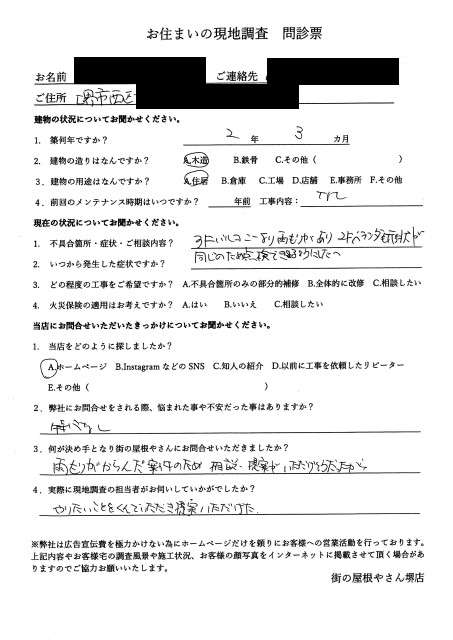 お住まいの現地調査 問診票
お名前 ご連絡先
ご住所 堺市西区
建物の状況についてお聞かせください。
1. 築何年ですか? 2 年 3 カ月
2. 建物の造りはなんですか? A.木造 B.鉄骨 C.その他( )
3. 建物の用途はなんですか? A.住居 B.倉庫 C.工場 D.店舗 E.事務所 F.その他
4. 前回のメンテナンス時期はいつですか? 年前 工事内容: なし
現在の状況についてお聞かせください。
1. 不具合箇所・症状・ご相談内容? 3Fバルコニーより雨もりがあり 2Fベランダも
2. いつから発生した症状ですか? 同じのため点検
3. どの程度の工事をご希望ですか? A.不具合箇所のみの部分的補修 B.全体的に改修 C.相談したい
4. 火災保険の適用はお考えですか? A.はい B.いいえ C.相談したい
当店にお問合せいただいたきっかけについてお聞かせください。
1. 当店をどのように探しましたか?
A.ホームページ B.Instagram などの SNS C.知人の紹介 D.以前に工事を依頼したリピーター
E.その他( )
2. 弊社にお問合せをされる際、悩まれた事や不安だった事はありますか?
特になし
3. 何が決め手となり街の屋根やさんにお問合せいただきましたか?
雨もりがからんだ案件のため 相談・提案がいただけそうだったから
4. 実際に現地調査の担当者がお伺いしていかがでしたか?
やりたいことをくんでいただき提案いただけた.
※弊社は広告宣伝費を極力かけない為にホームページだけを頼りにお客様への営業活動を行っております。
上記内容やお客様宅の調査風景や施工状況、お客様の顔写真をインターネットに掲載させて頂く場合があ
りますのでご協力お願いいたします。
街の屋根やさん堺店